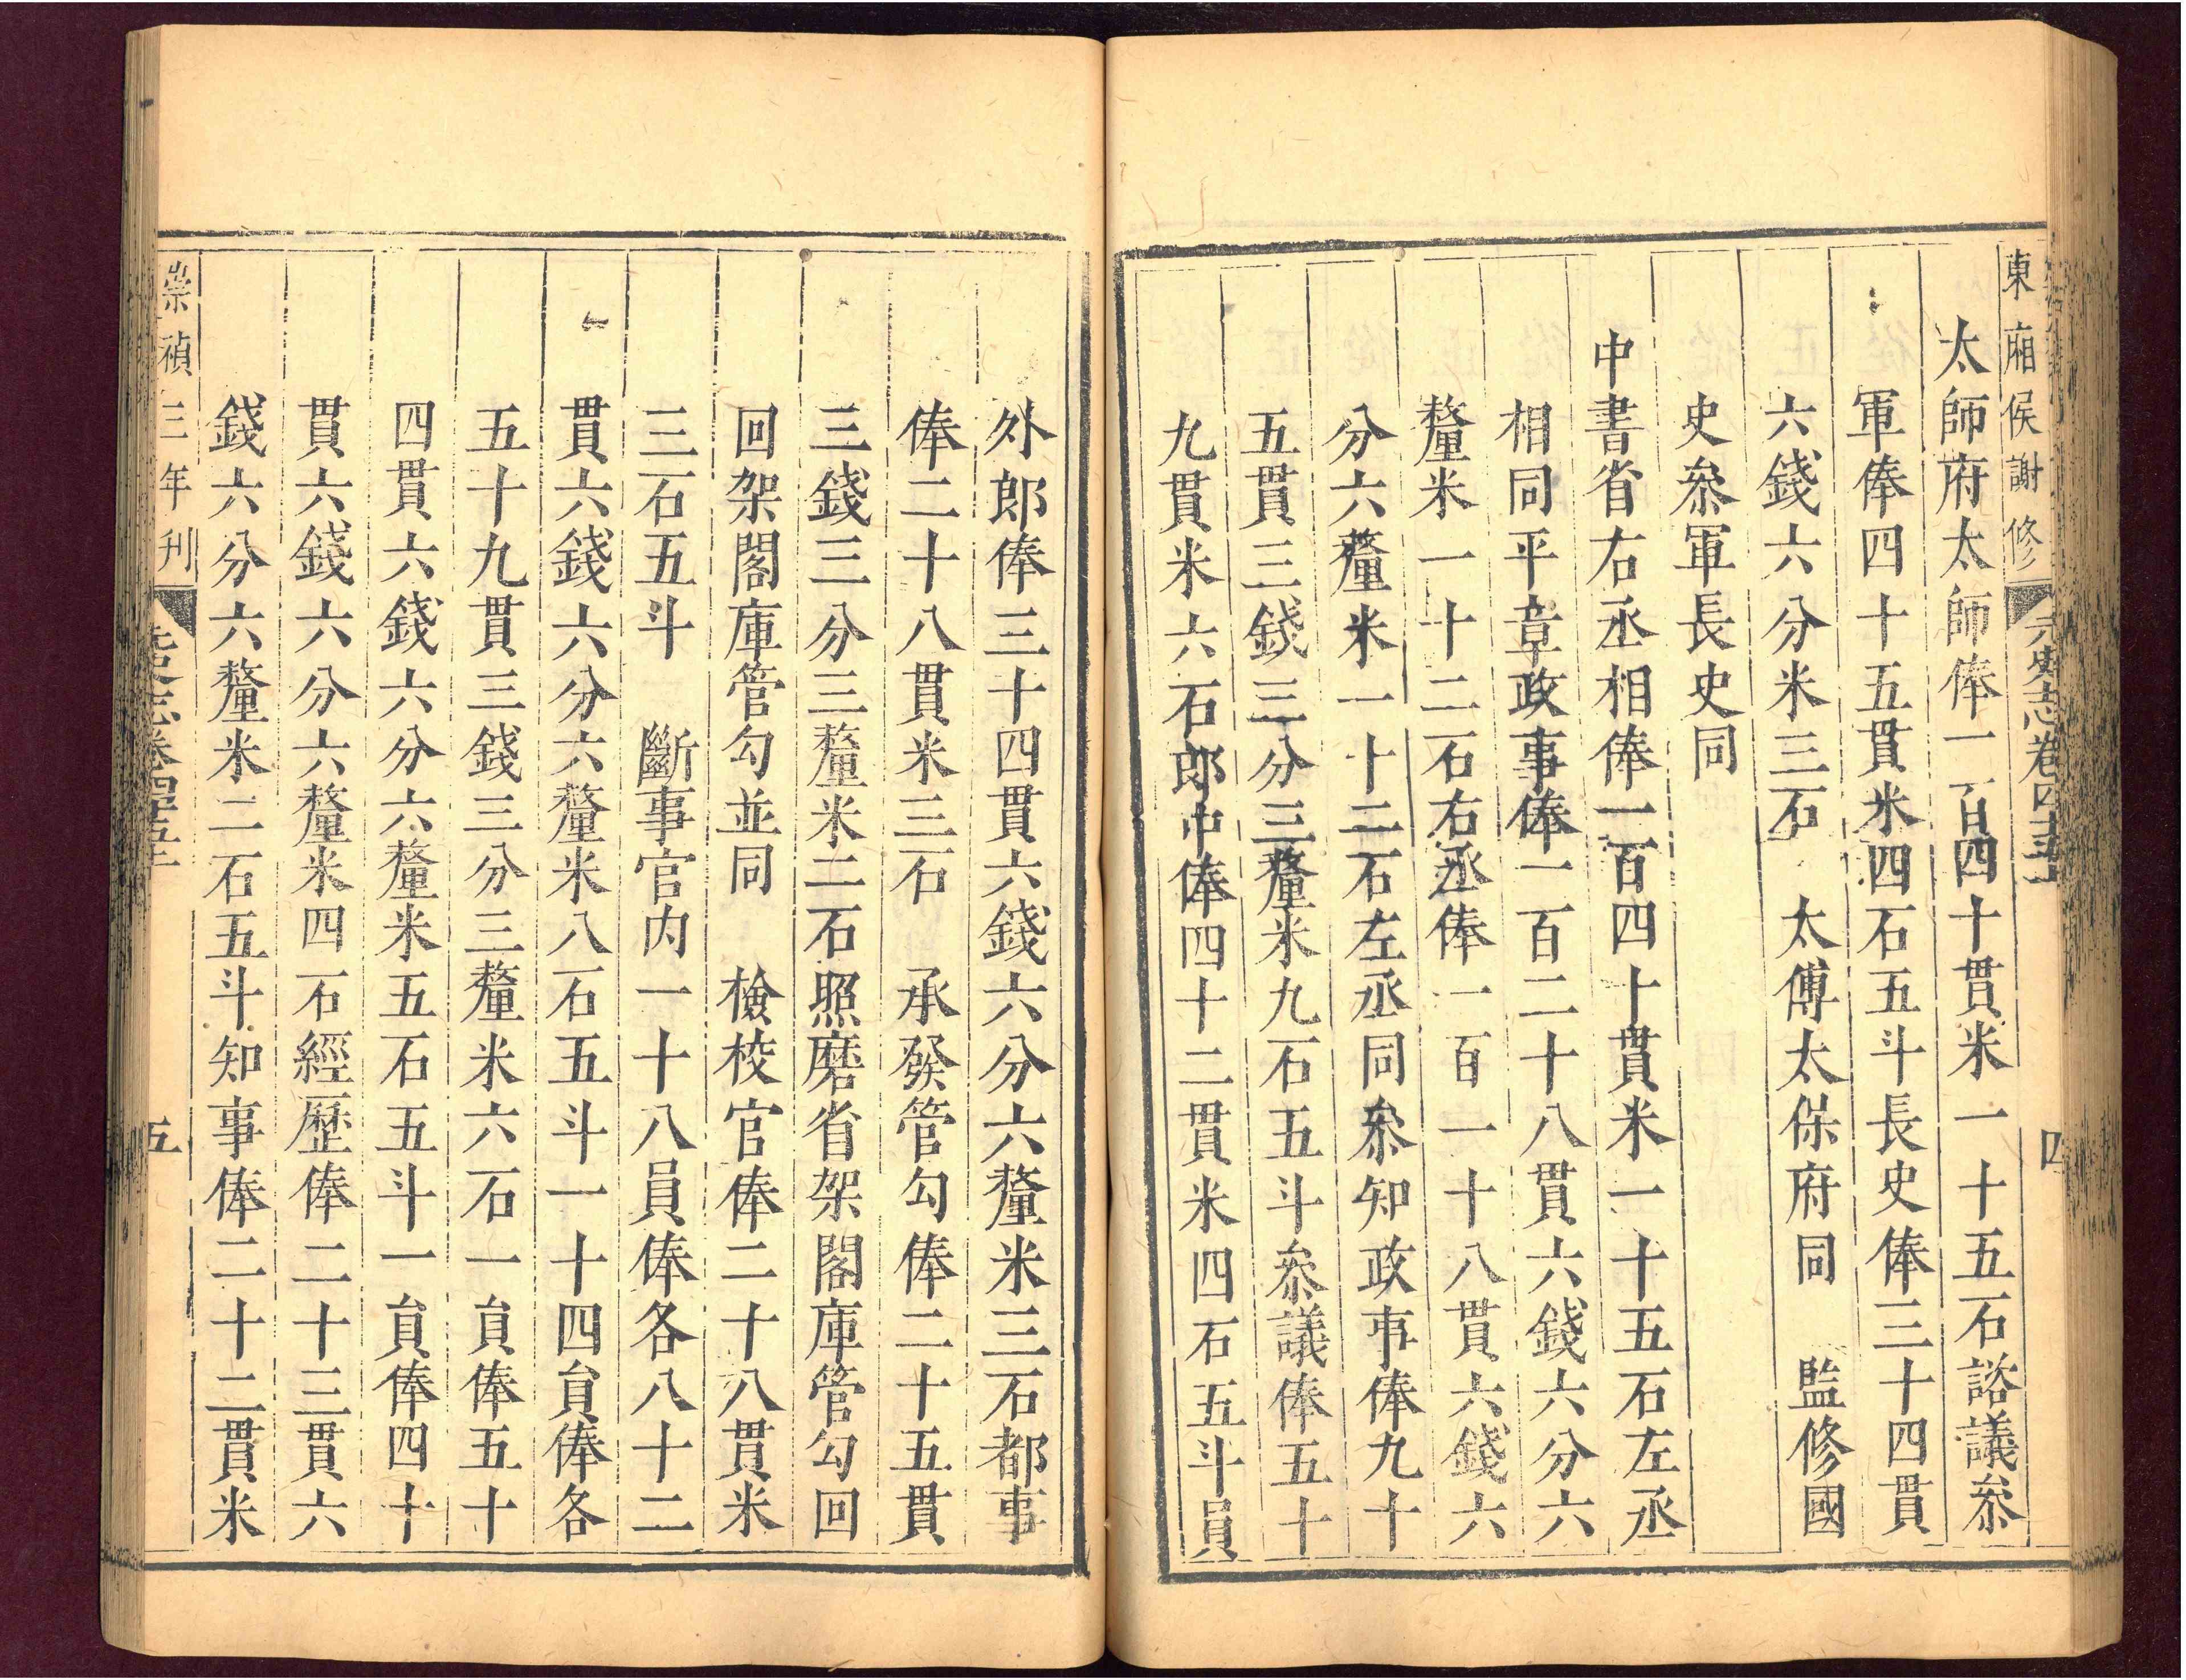 東廂侯謝修
元史志卷四十五上
四
太師府太師俸一百四十貫米一十五石諮議叅
軍俸四十五貫米四石五斗長史俸三十四貫
六錢六分米三石　太傅太保府同　監修國
史叅軍長史同
中書省右丞相俸一百四十貫米一十五石左丞
相同平章政事俸一百二十八貫六錢六分六
釐米一十二石右丞俸一百一十八貫六錢六
分六釐米一十二石左丞同叅知政事俸九十
五貫三錢三分三釐米九石五斗叅議俸五十
九貫米六石郎中俸四十二貫米四石五斗員
外郎俸三十四貫六錢六分六釐米三石都事
俸二十八貫米三石　承發管勾俸二十五貫
三錢三分三釐米二石照磨省架閣庫管勾回
回架閣庫管勾並同　檢校官俸二十八貫米
三石五斗　斷事官内一十八員俸各八十二
貫六錢六分六釐米八石五斗一十四員俸各
五十九貫三錢三分三釐米六石一員俸五十
四貫六錢六分六釐米五石五斗一員俸四十
貫六錢六分六釐米四石經歷俸二十三貫六
錢六分六釐米二石五斗知事俸二十二貫米
崇禎三年刊
史志卷四十五上
五